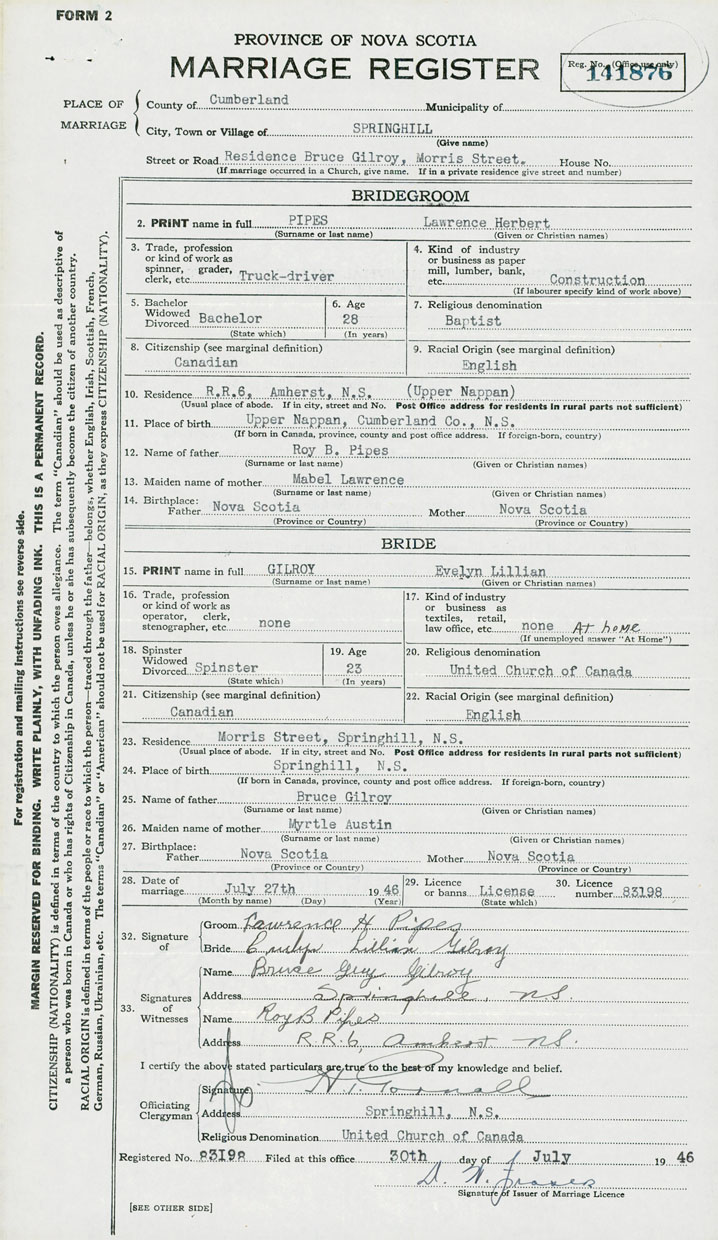 FORM 2
PROVINCE OF NOVA SCOTIA
MARRIAGE REGISTER
Reg. No. (Office use only)
141876
PLACE OF MARRIAGE
County of Cumberland Municipality of
City, Town or Village of SPRINGHILL
(Give name)
Street or Road Residence Bruce Gilroy, Morris Street. House No.
(If marriage occurred in a Church, give name. If in a private residence give street and number)
BRIDEGROOM
2. PRINT name in full PIPES Lawrence Herbert
(Surname or last name) (Given or Christian names)
3. Trade, profession or kind of work as spinner, grader, clerk, etc. Truck-driver
4. Kind of industry or business as paper mill, lumber, bank, etc. Construction
(If labourer specify kind of work above)
5. Bachelor Widowed Divorced Bachelor
(State which)
6. Age 28
(In years)
7. Religious denomination
Baptist
8. Citizenship (see marginal definition)
Canadian
9. Racial Origin (see marginal definition)
English
10. Residence R.R.6, Amherst, N.S. (Upper Nappan)
(Usual place of abode. If in city, street and No. Post Office address for residents in rural parts not sufficient)
11. Place of birth Upper Nappan, Cumberland Co., N.S.
(If born in Canada, province, county and post office address. If foreign-born, country)
12. Name of father Roy B. Pipes
(Surname or last name) (Given or Christian names)
13. Maiden name of mother Mabel Lawrence
(Surname or last name) (Given or Christian names)
14. Birthplace: Father Nova Scotia Mother Nova Scotia
(Province or Country) (Province or Country)
BRIDE
15. PRINT name in full GILROY Evelyn Lillian
(Surname or last name) (Given or Christian names)
16. Trade, profession or kind of work as operator, clerk, stenographer, etc. none
17. Kind of industry or business as textiles, retail, law office, etc. none At home
(If unemployed answer "At Home")
18. Spinster Widowed Divorced Spinster
(State which)
19. Age 23
(In years)
20. Religious denomination
United Church of Canada
21. Citizenship (see marginal definition)
Canadian
22. Racial Origin (see marginal definition)
English
23. Residence Morris Street, Springhill, N.S.
(Usual place of abode. If in city, street and No. Post Office address for residents in rural parts not sufficient)
24. Place of birth Springhill, N.S.
(If born in Canada, province, county and post office address. If foreign-born, country)
25. Name of father Bruce Gilroy
(Surname or last name) (Given or Christian names)
26. Maiden name of mother Myrtle Austin
(Surname or last name) (Given or Christian names)
27. Birthplace: Father Nova Scotia Mother Nova Scotia
(Province or Country) (Province or Country)
28. Date of marriage July 27th 1946
(Month by name) (Day) (Year)
29. Licence or banns License
(State which)
30. Licence number 83198
32. Signature of
Groom Lawrence H Pipes
Bride Evelyn Lillian Gilroy
33. Signatures of Witnesses
Name Bruce Guy Gilroy
Address Springhill, NS.
Name Roy B Pipes
Address R.R.6, Amherst NS.
I certify the above stated particulars are true to the best of my knowledge and belief.
Officiating Clergyman
Signature
Address Springhill, N.S.
Religious Denomination United Church of Canada
Registered No. 83198 Filed at this office 30th day of July 1946
Signature of Issuer of Marriage Licence
[SEE OTHER SIDE]
For registration and mailing instructions see reverse side.
MARGIN RESERVED FOR BINDING. WRITE PLAINLY, WITH UNFADING INK. THIS IS A PERMANENT RECORD.
CITIZENSHIP (NATIONALITY) is defined in terms of the country to which the person owes allegiance. The term "Canadian" should be used as descriptive of
a person who was born in Canada or who has rights of Citizenship in Canada, unless he or she has subsequently become the citizen of another country.
RACIAL ORIGIN is defined in terms of the people or race to which the person—traced through the father—belongs, whether English, Irish, Scottish, French,
German, Russian, Ukrainian, etc. The terms "Canadian" or "American" should not be used for RACIAL ORIGIN, as they express CITIZENSHIP (NATIONALITY).